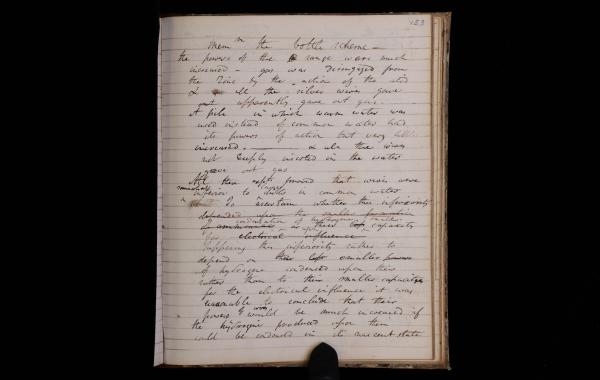 153
Mem the bottle scheme —
the powers of the range were much
increased — gas was disengaged from
the Zinc by the action of the acid
& all the silver wires gave
out apparently gave out gas.
A pile in which warm water was
used instead of common water had
its powers of action but very little
increased. — & when the wires
not deeply inserted in the water
gave out gas
All these expts proved that wires were
inferior to in common water
To ascertain whether this inferiority
depended upon the smaller
condensation of hydrogene
of ammonia to their capacity
for electrical influence
Supposing this inferiority rather to
depend on their smaller powers
of hydrogene condensed upon their
rather than to their smaller capacities
for the electrical influence it was
reasonable to conclude that their
powers would be much increased if
the hydrogene produced upon them
could be condensed in its nascent state